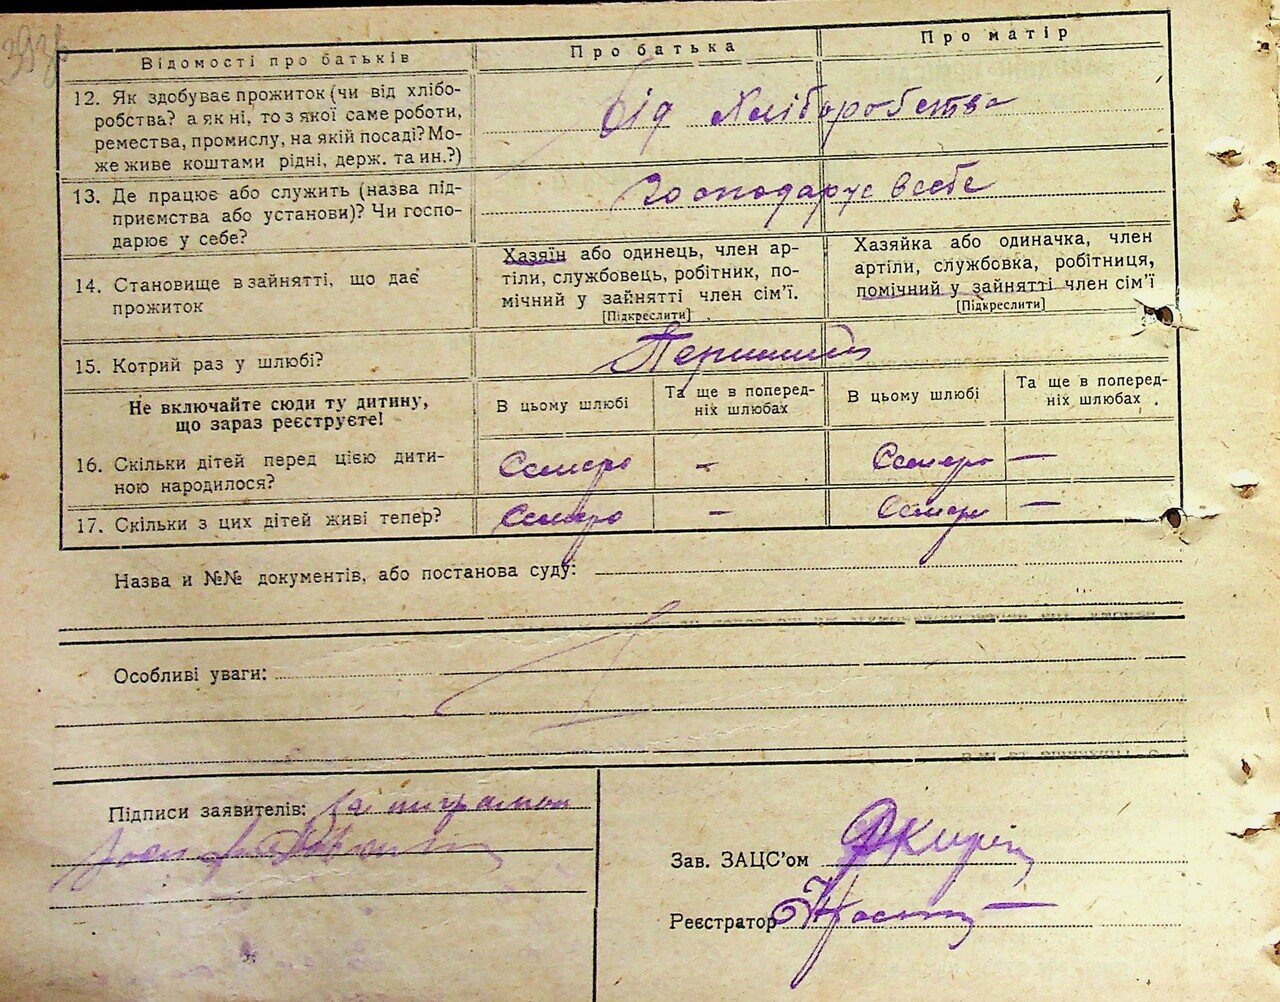 Відомості про батьків
Про батька
Про матір
12. Як здобуває прожиток (чи від хлібо-
робства? а як ні, то з якої саме роботи,
ремества, промислу, на якій посаді? Мо-
же живе коштами рідні, держ. та ин.?)
від хліборобства
13. Де працює або служить (назва під-
приємства або установи)? Чи госпо-
дарює у себе?
господарує в себе
14. Становище в зайнятті, що дає
прожиток
Хазяїн або одинець, член ар-
тіли, службовець, робітник, по-
мічний у зайнятті член сім'ї.
[Підкреслити]
Хазяйка або одиначка, член
артіли, службовка, робітниця,
помічний у зайнятті член сім'ї
[Підкреслити]
15. Котрий раз у шлюбі?
Перший
Не включайте сюди ту дитину,
що зараз реєструєте!
В цьому шлюбі
Та ще в поперед-
ніх шлюбах
В цьому шлюбі
Та ще в поперед-
ніх шлюбах
16. Скільки дітей перед цією дити-
ною народилося?
Семеро
—
Семеро
—
17. Скільки з цих дітей живі тепер?
Семеро
—
Семеро
—
Назва и №№ документів, або постанова суду:
Особливі уваги:
Підписи заявителів: за
Зав. ЗАЦС'ом
Реєстратор